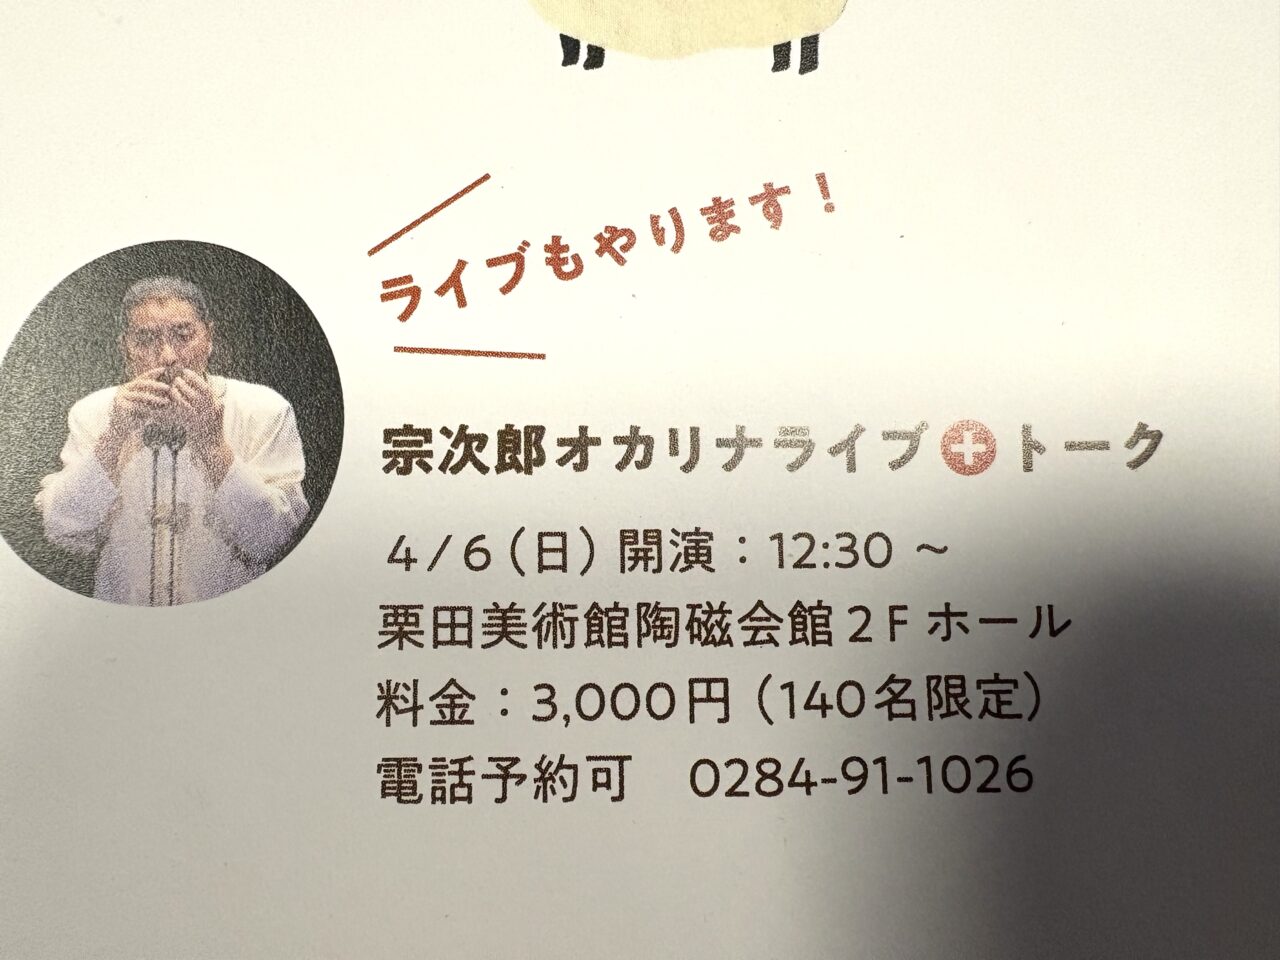 ライブもやります!
宗次郎オカリナライブ+トーク
4/6(日)開演:12:30 ~
栗田美術館陶磁会館2Fホール
料金:3,000円(140名限定)
電話予約可 0284-91-1026